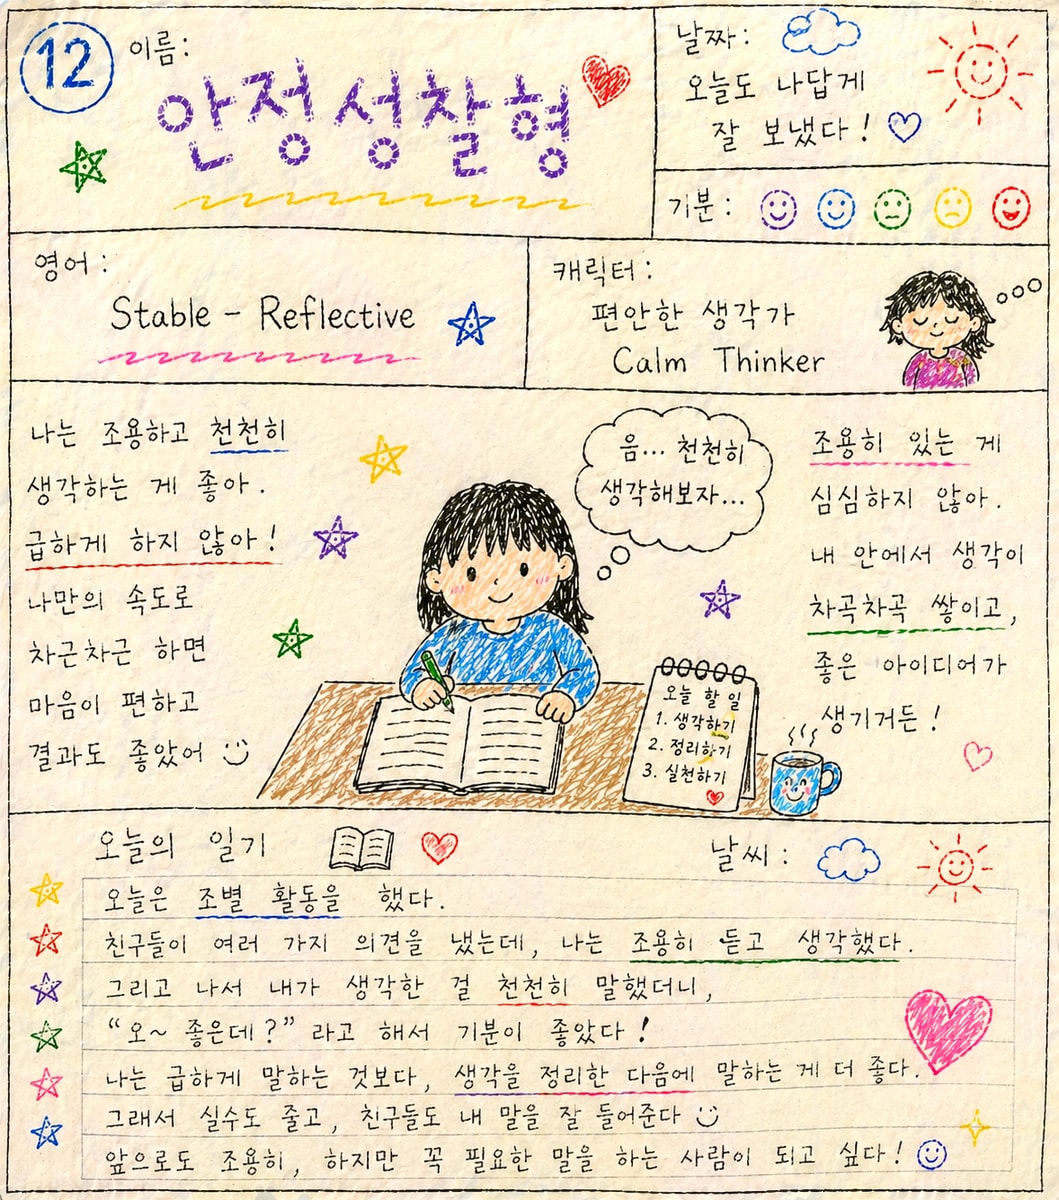 12
이름:
안정성찰형
날짜:
오늘도 나답게
잘 보냈다!
기분:
영어:
Stable - Reflective
캐릭터:
편안한 생각가
Calm Thinker
나는 조용하고 천천히
생각하는 게 좋아.
급하게 하지 않아!
나만의 속도로
차근차근 하면
마음이 편하고
결과도 좋았어
음... 천천히
생각해보자...
조용히 있는 게
심심하지 않아.
내 안에서 생각이
차곡차곡 쌓이고,
좋은 아이디어가
생기거든!
오늘 할 일
1. 생각하기
2. 정리하기
3. 실천하기
오늘의 일기
날씨:
오늘은 조별 활동을 했다.
친구들이 여러 가지 의견을 냈는데, 나는 조용히 듣고 생각했다.
그리고 나서 내가 생각한 걸 천천히 말했더니,
“오~ 좋은데?” 라고 해서 기분이 좋았다!
나는 급하게 말하는 것보다, 생각을 정리한 다음에 말하는 게 더 좋다.
그래서 실수도 줄고, 친구들도 내 말을 잘 들어준다
앞으로도 조용히, 하지만 꼭 필요한 말을 하는 사람이 되고 싶다!